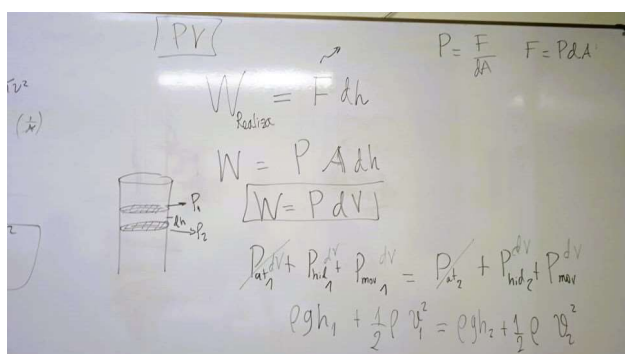 PV
P = F/dA F = PdA
W Realiza = F dh
W = P A dh
W = P dV
P₁
dh
P₂
P_at₁ dV + P_hid₁ dV + P_mov₁ dV = P_at₂ + P_hid₂ dV + P_mov dV
ρgh₁ + 1/2 ρ v₁² = ρgh₂ + 1/2 ρ v₂²